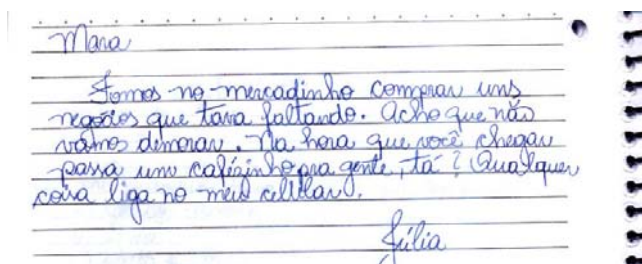 Mara
Fomos no mercadinho comprar uns
negócios que tava faltando. Acho que não
vamos demorar. Na hora que você chegar
passa um cafézinho pra gente, tá? Qualquer
coisa liga no meu celular.
Júlia